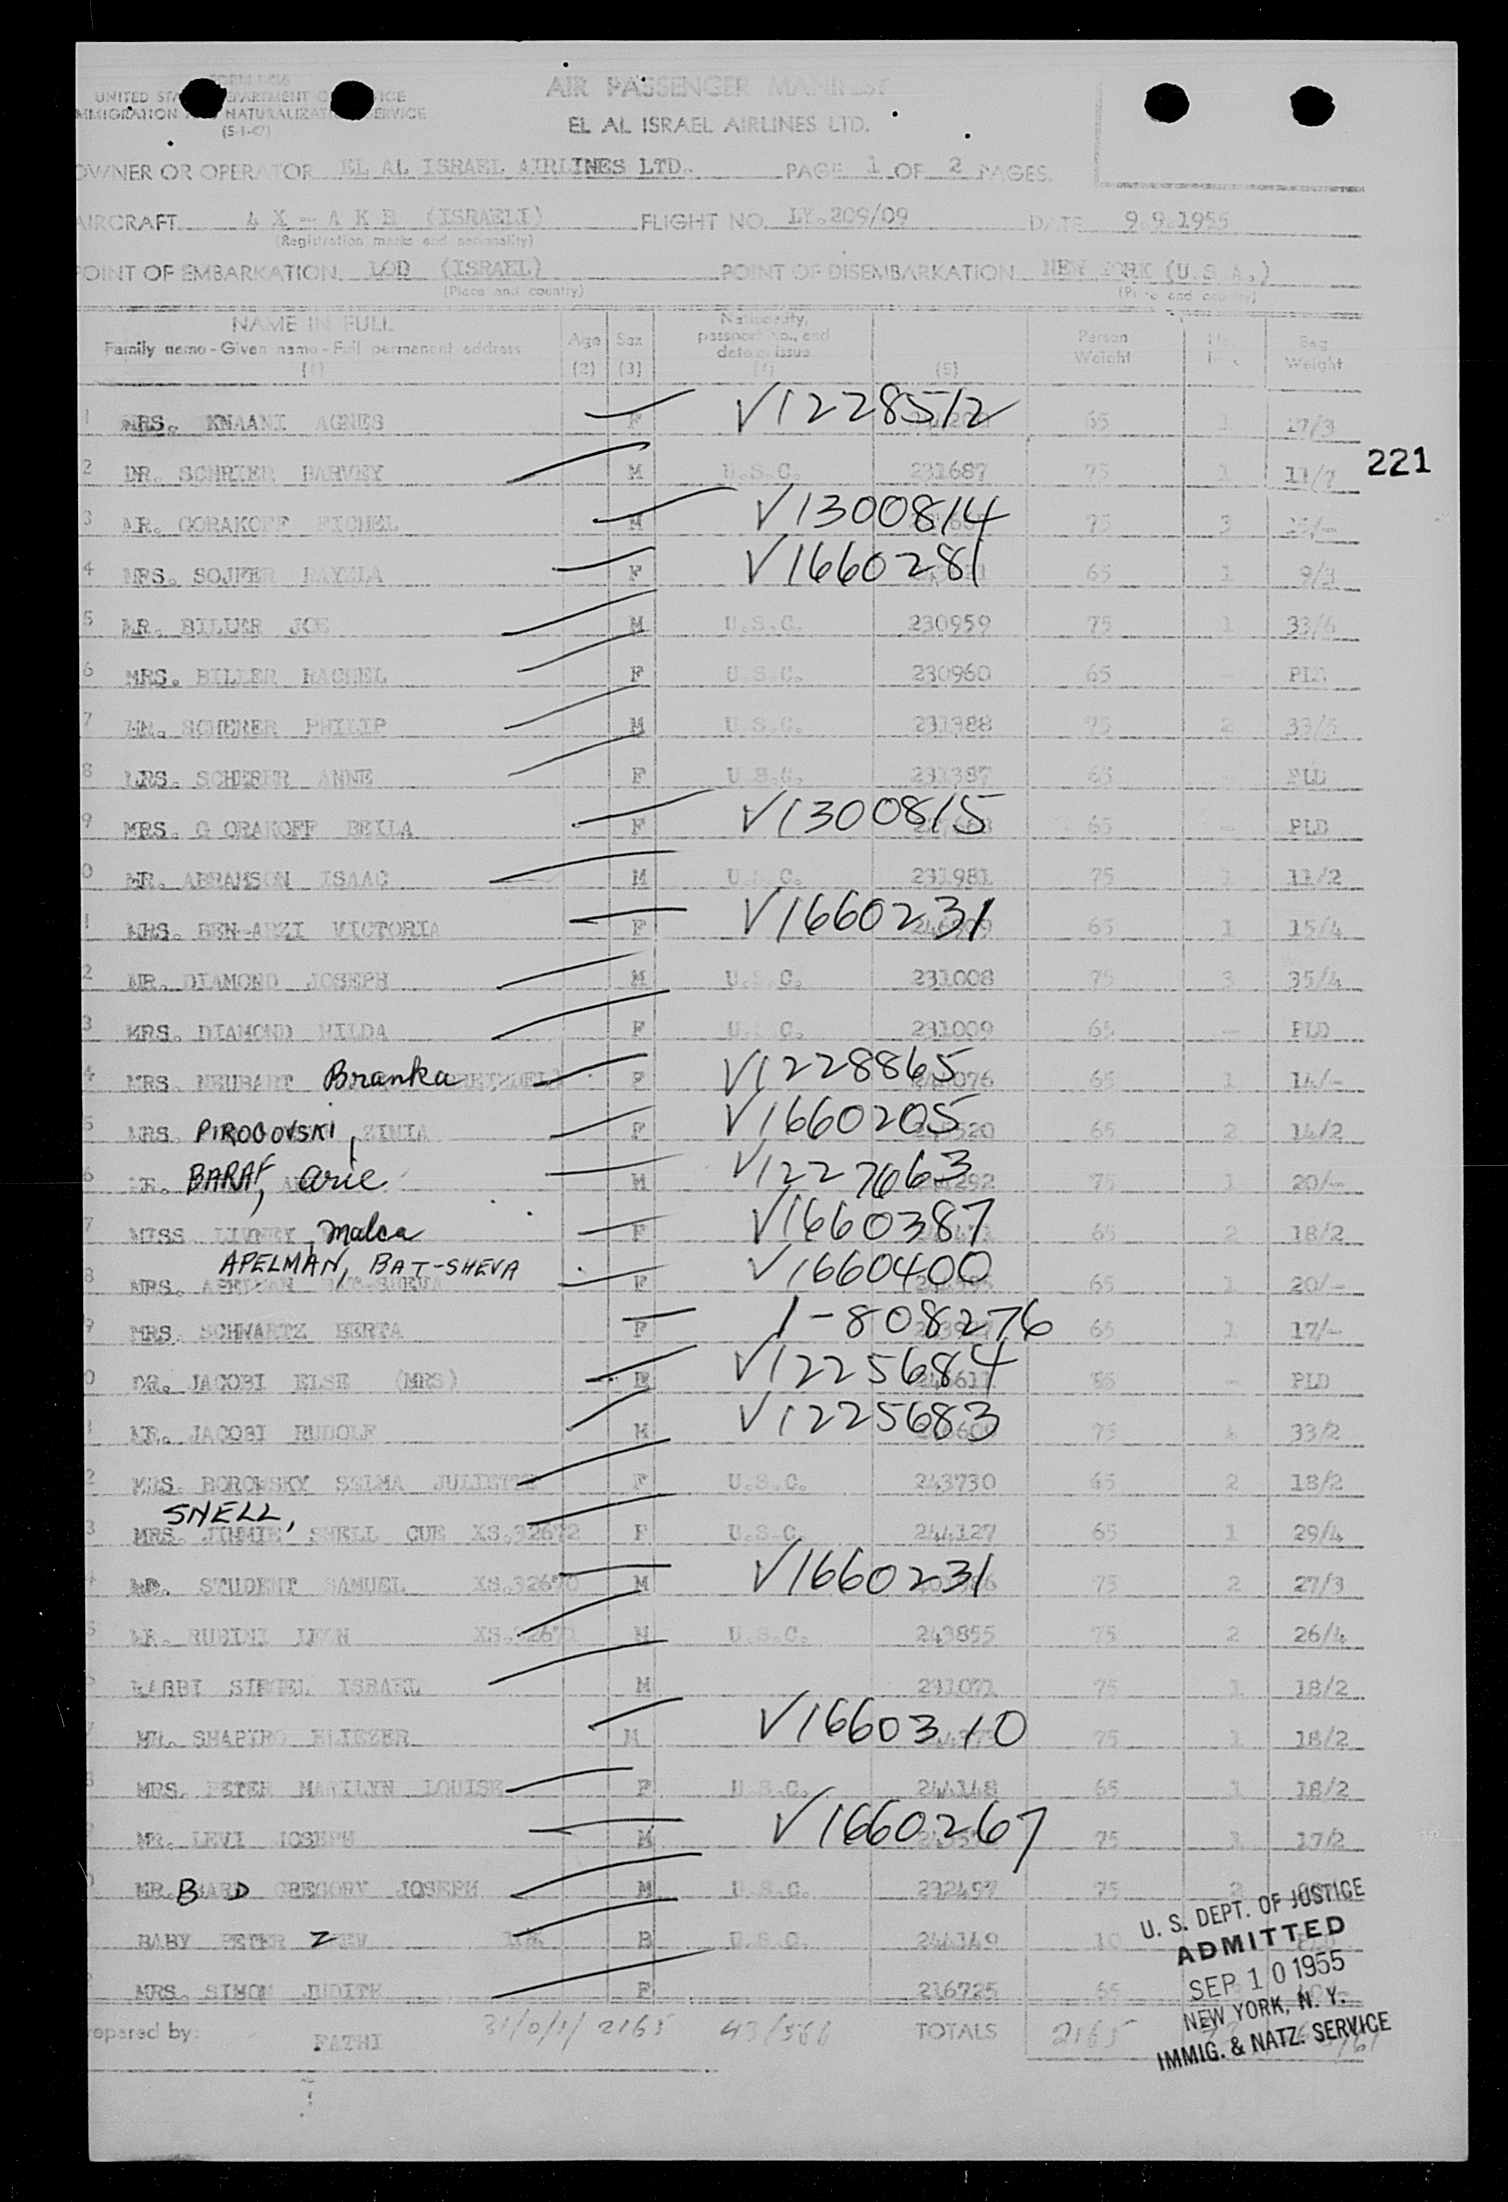 UNITED STA
AIR PASSENGER MANIFEST
NATURALIZAT SERVICE
(5-1-47)
EL AL ISRAEL AIRLINES LTD.
OWNER OR OPERATOR EL AL ISRAEL AIRLINES LTD. PAGE 1 OF 2 PAGES.
AIRCRAFT 4 X - A K B (ISRAELI) FLIGHT NO. LY.209/09 DATE 9.9.1955
(Registration marks and nationality)
POINT OF EMBARKATION LOD (ISRAEL) POINT OF DISEMBARKATION NEW YORK (U.S.A.)
(Place and country) (Place and country)
NAME IN FULL Age Sex Nationality, passport no., and date of issue Person Weight Bag Weight
Family name - Given name - Full permanent address
(1) (2) (3) (4) (5)
1 MRS. KNAANI AGNES F V1228512 65 1 17/3
221
2 DR. SCHRIER HARVEY M U.S.C. 231687 75 1 11/7
3 MR. GORAKOFF EICHEL M V1300814 75 3
4 MRS. SOJFER F V1660281 65 1 9/3
5 MR. BILLER JOE M U.S.C. 230959 75 1 33/6
6 MRS. BILLER RACHEL F U.S.C. 230960 65 - PLD
7 MR. SCHERER PHILIP M U.S.C. 231388 75 2 33/5
8 MRS. SCHERER ANNE F U.S.C. 231387 65 PLD
9 MRS. G ORAKOFF BEILA F V1300815 65 - PLD
0 MR. ABRAMSON ISAAC M U.S.C. 231981 75 1 11/2
1 MRS. BEN-ARZI VICTORIA F V1660231 65 1 15/4
2 MR. DIAMOND JOSEPH M U.S.C. 231008 75 3 35/4
3 MRS. DIAMOND HILDA F U.S.C. 231009 65 - PLD
4 MRS. NEUBART Branka F V1228865 65 1 14/-
5 MRS. PIROGOVSKI, ZINIA F V1660205 65 2 14/2
6 MR. BARAT, Arie M V1227663 75 1 20/-
7 MISS , Malca F V1660387 65 2 18/2
APELMAN, BAT-SHEVA
8 MRS. APELMAN BAT-SHEVA F V1660400 65 1 20/-
9 MRS. SCHWARTZ BERTA F 1-808276 65 1 17/-
0 DR. JACOBI ELSE (MRS) F V1225684 65 - PLD
1 MR. JACOBI RUDOLF M V1225683 75 4 33/2
2 MRS. BOROWSKY SELMA JULIETTE F U.S.C. 243730 65 2 18/2
SNELL,
3 MRS. JIMMIE SNELL CUE XS.32672 F U.S.C. 244127 65 1 29/4
MR. STUDENT SAMUEL XS.32670 M V1660231 75 2 27/3
MR. RUBINI LEON XS.32671 M U.S.C. 243855 75 2 26/4
RABBI SIEGEL ISRAEL M 231071 75 1 18/2
MR. SHAPIRO ELIEZER M V1660310 75 1 18/2
MRS. PETER MARILYN LOUISE F U.S.C. 244148 65 1 18/2
MR. LEVI JOSEPH M V1660267 75 1 17/2
MR. BARD GREGORY JOSEPH M U.S.C. 232497 75 2
BABY PETER B U.S.C. 244149 10
MRS. SIMON JUDITH F 216725 65
Prepared by: FATHI 31/0/1/ 2165 43/566 TOTALS 2165
U. S. DEPT. OF JUSTICE
ADMITTED
SEP 10 1955
NEW YORK, N. Y.
IMMIG. & NATZ. SERVICE